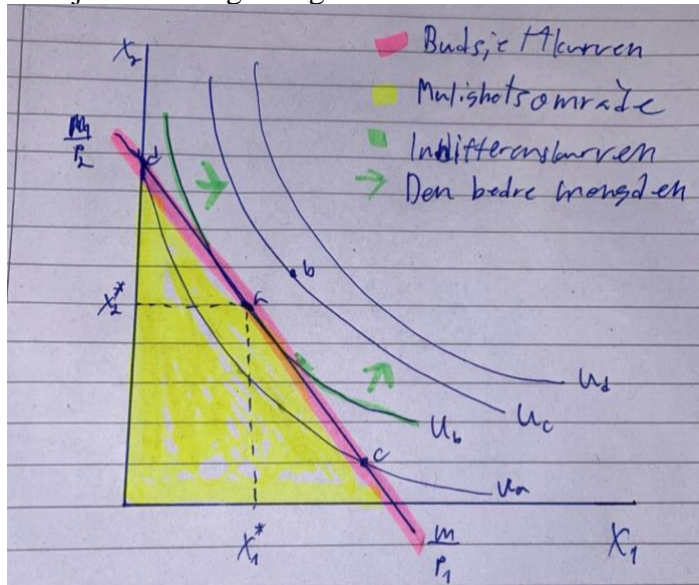 X₂
Budsjettkurven
Mulighetsområde
Indifferenskurven
→ Den bedre mengden
m/p₂
d
b
X₂*
a
c
U_d
U_c
U_b
U_a
X₁*
m/p₁
X₁